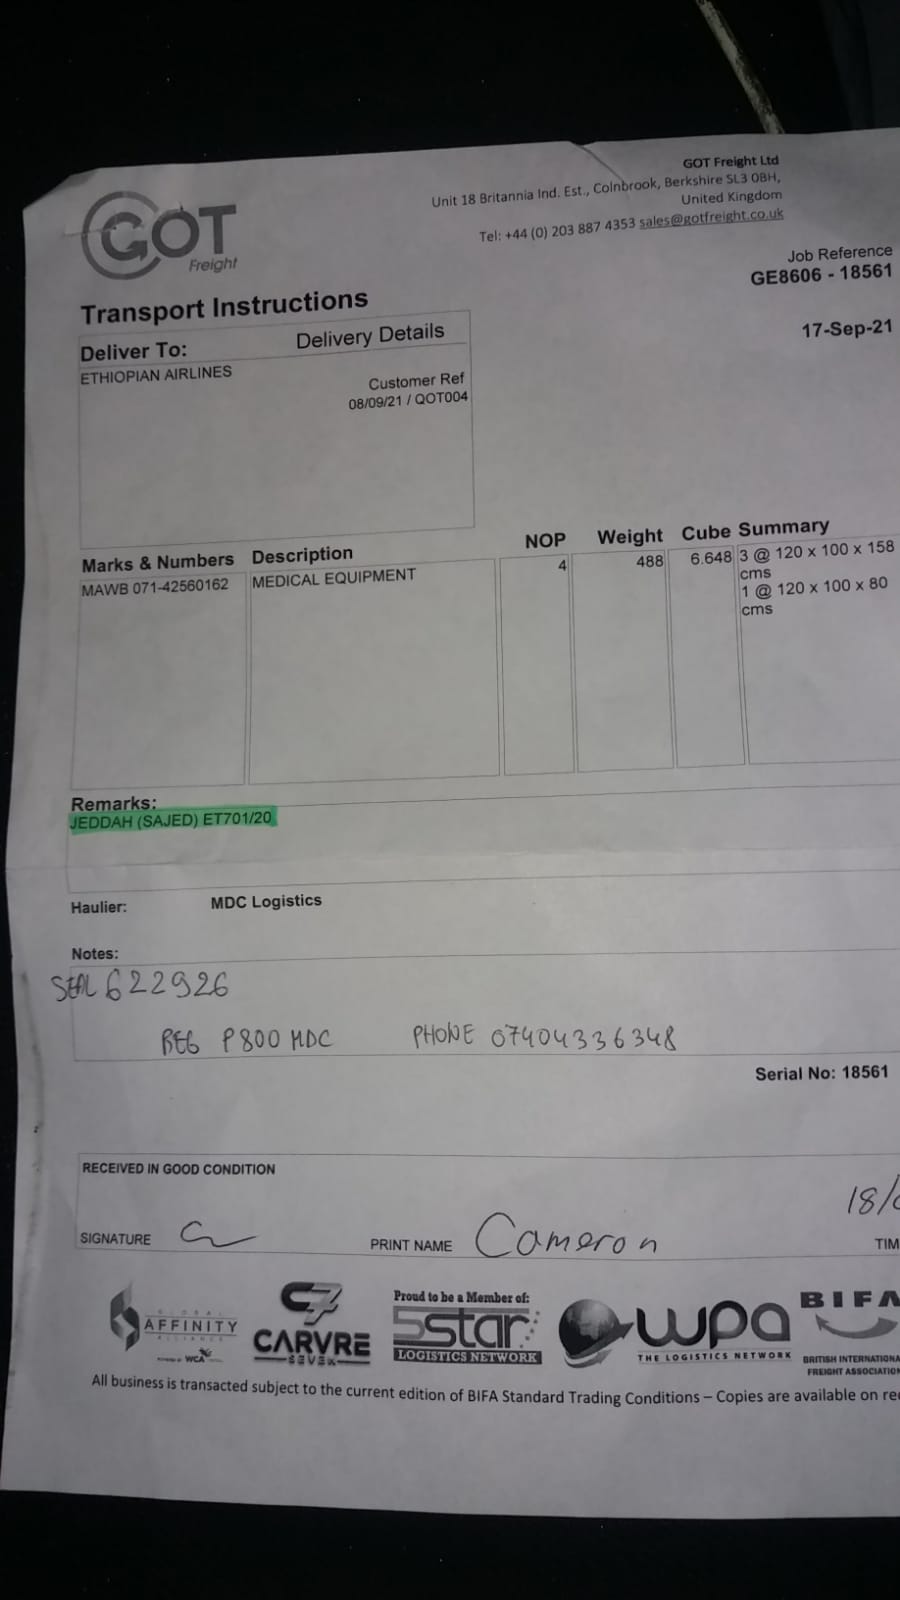 GOT
Freight
GOT Freight Ltd
Unit 18 Britannia Ind. Est., Colnbrook, Berkshire SL3 0BH,
United Kingdom
Tel: +44 (0) 203 887 4353 sales@gotfreight.co.uk
Job Reference
GE8606 - 18561
17-Sep-21
Transport Instructions
Deliver To: Delivery Details
ETHIOPIAN AIRLINES
Customer Ref
08/09/21 / QOT004
Marks & Numbers Description NOP Weight Cube Summary
MAWB 071-42560162 MEDICAL EQUIPMENT 4 488 6.648 3 @ 120 x 100 x 158
cms
1 @ 120 x 100 x 80
cms
Remarks:
JEDDAH (SAJED) ET701/20
Haulier: MDC Logistics
Notes:
SEAL 622926
REG P800 MDC PHONE 07404336348
Serial No: 18561
RECEIVED IN GOOD CONDITION
18/
SIGNATURE PRINT NAME Cameron TIM
GLOBAL
AFFINITY
ALLIANCE
WCA
CARVRE
SEVEN
Proud to be a Member of:
5star
LOGISTICS NETWORK
wpa
THE LOGISTICS NETWORK
BIFA
BRITISH INTERNATIONA
FREIGHT ASSOCIATION
All business is transacted subject to the current edition of BIFA Standard Trading Conditions – Copies are available on re